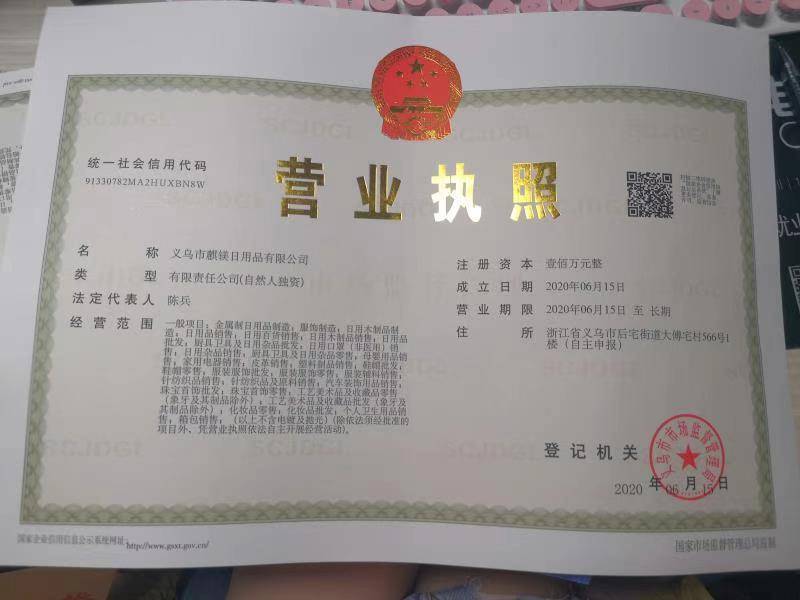 统一社会信用代码
91330782MA2HUXBN8W
营业执照
名称 义乌市麒镁日用品有限公司
类型 有限责任公司(自然人独资)
法定代表人 陈兵
经营范围 一般项目：金属制日用品制造；服饰制造；日用木制品制
造；日用品销售；日用百货销售；日用木制品销售；日用品
批发；厨具卫具及日用杂品批发；日用口罩（非医用）销
售；日用杂品销售；厨具卫具及日用杂品零售；母婴用品销
售；家用电器销售；皮革销售；塑料制品销售；鞋帽批发；
鞋帽零售；服装服饰批发；服装服饰零售；服装辅料销售；
针纺织品销售；针纺织品及原料销售；汽车装饰用品销售；
珠宝首饰批发；珠宝首饰零售；工艺美术品及收藏品零售
（象牙及其制品除外）；工艺美术品及收藏品批发（象牙及
其制品除外）；化妆品零售；化妆品批发；个人卫生用品销
售；箱包销售；（以上不含电镀及抛光）(除依法须经批准的
项目外，凭营业执照依法自主开展经营活动)。
注册资本 壹佰万元整
成立日期 2020年06月15日
营业期限 2020年06月15日 至 长期
住所 浙江省义乌市后宅街道大傅宅村566号1
楼（自主申报）
登记机关
义乌市市场监督管理局
2020 年 06 月 15 日
国家企业信用信息公示系统网址：http://www.gsxt.gov.cn/
国家市场监督管理总局监制